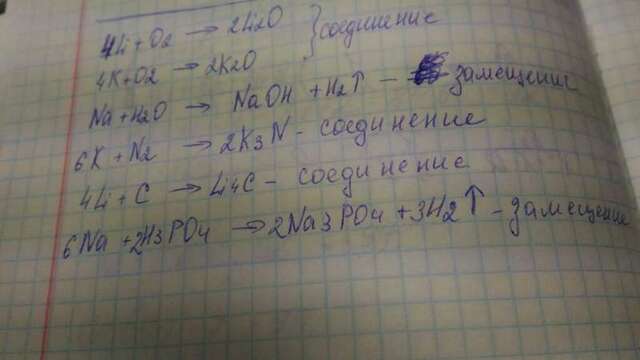 4Li + O2 → 2Li2O } соединение
4K + O2 → 2K2O
Na + H2O → NaOH + H2↑ - замещение
6K + N2 → 2K3N - соединение
4Li + C → Li4C - соединение
6Na + 2H3PO4 → 2Na3PO4 + 3H2↑ - замещение